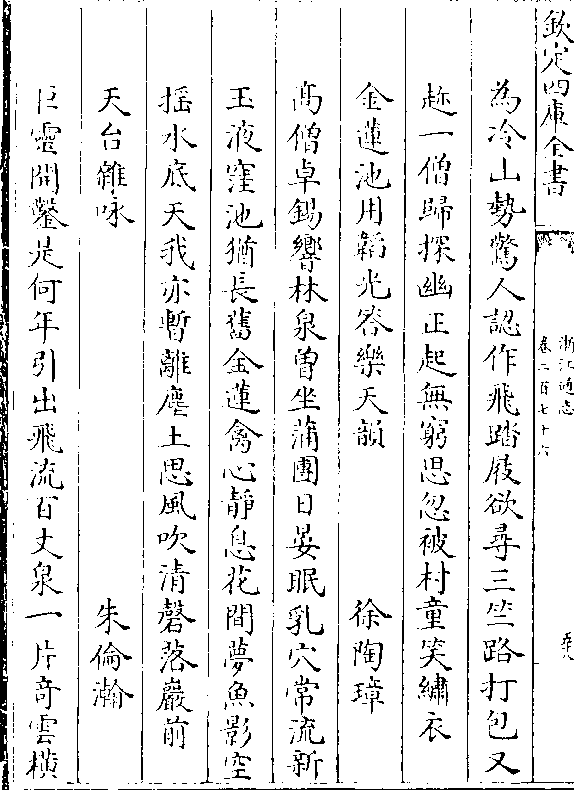 欽定四庫全書
浙江通志
卷二百七十六
為冷山勢驚人認作飛踏屐欲尋三竺路打包又
趂一僧歸探幽正起無窮思忽被村童笑繡衣
金蓮池用韜光答樂天韻　徐陶璋
高僧卓錫響林泉曾坐蒲團日晏眠乳穴常流新
玉液窪池猶長舊金蓮禽心靜息花間夢魚影空
揺水底天我亦暫離塵土思風吹清磬落巖前
天台雜咏　朱倫瀚
巨靈開鑿是何年引出飛流百丈泉一片竒雲橫